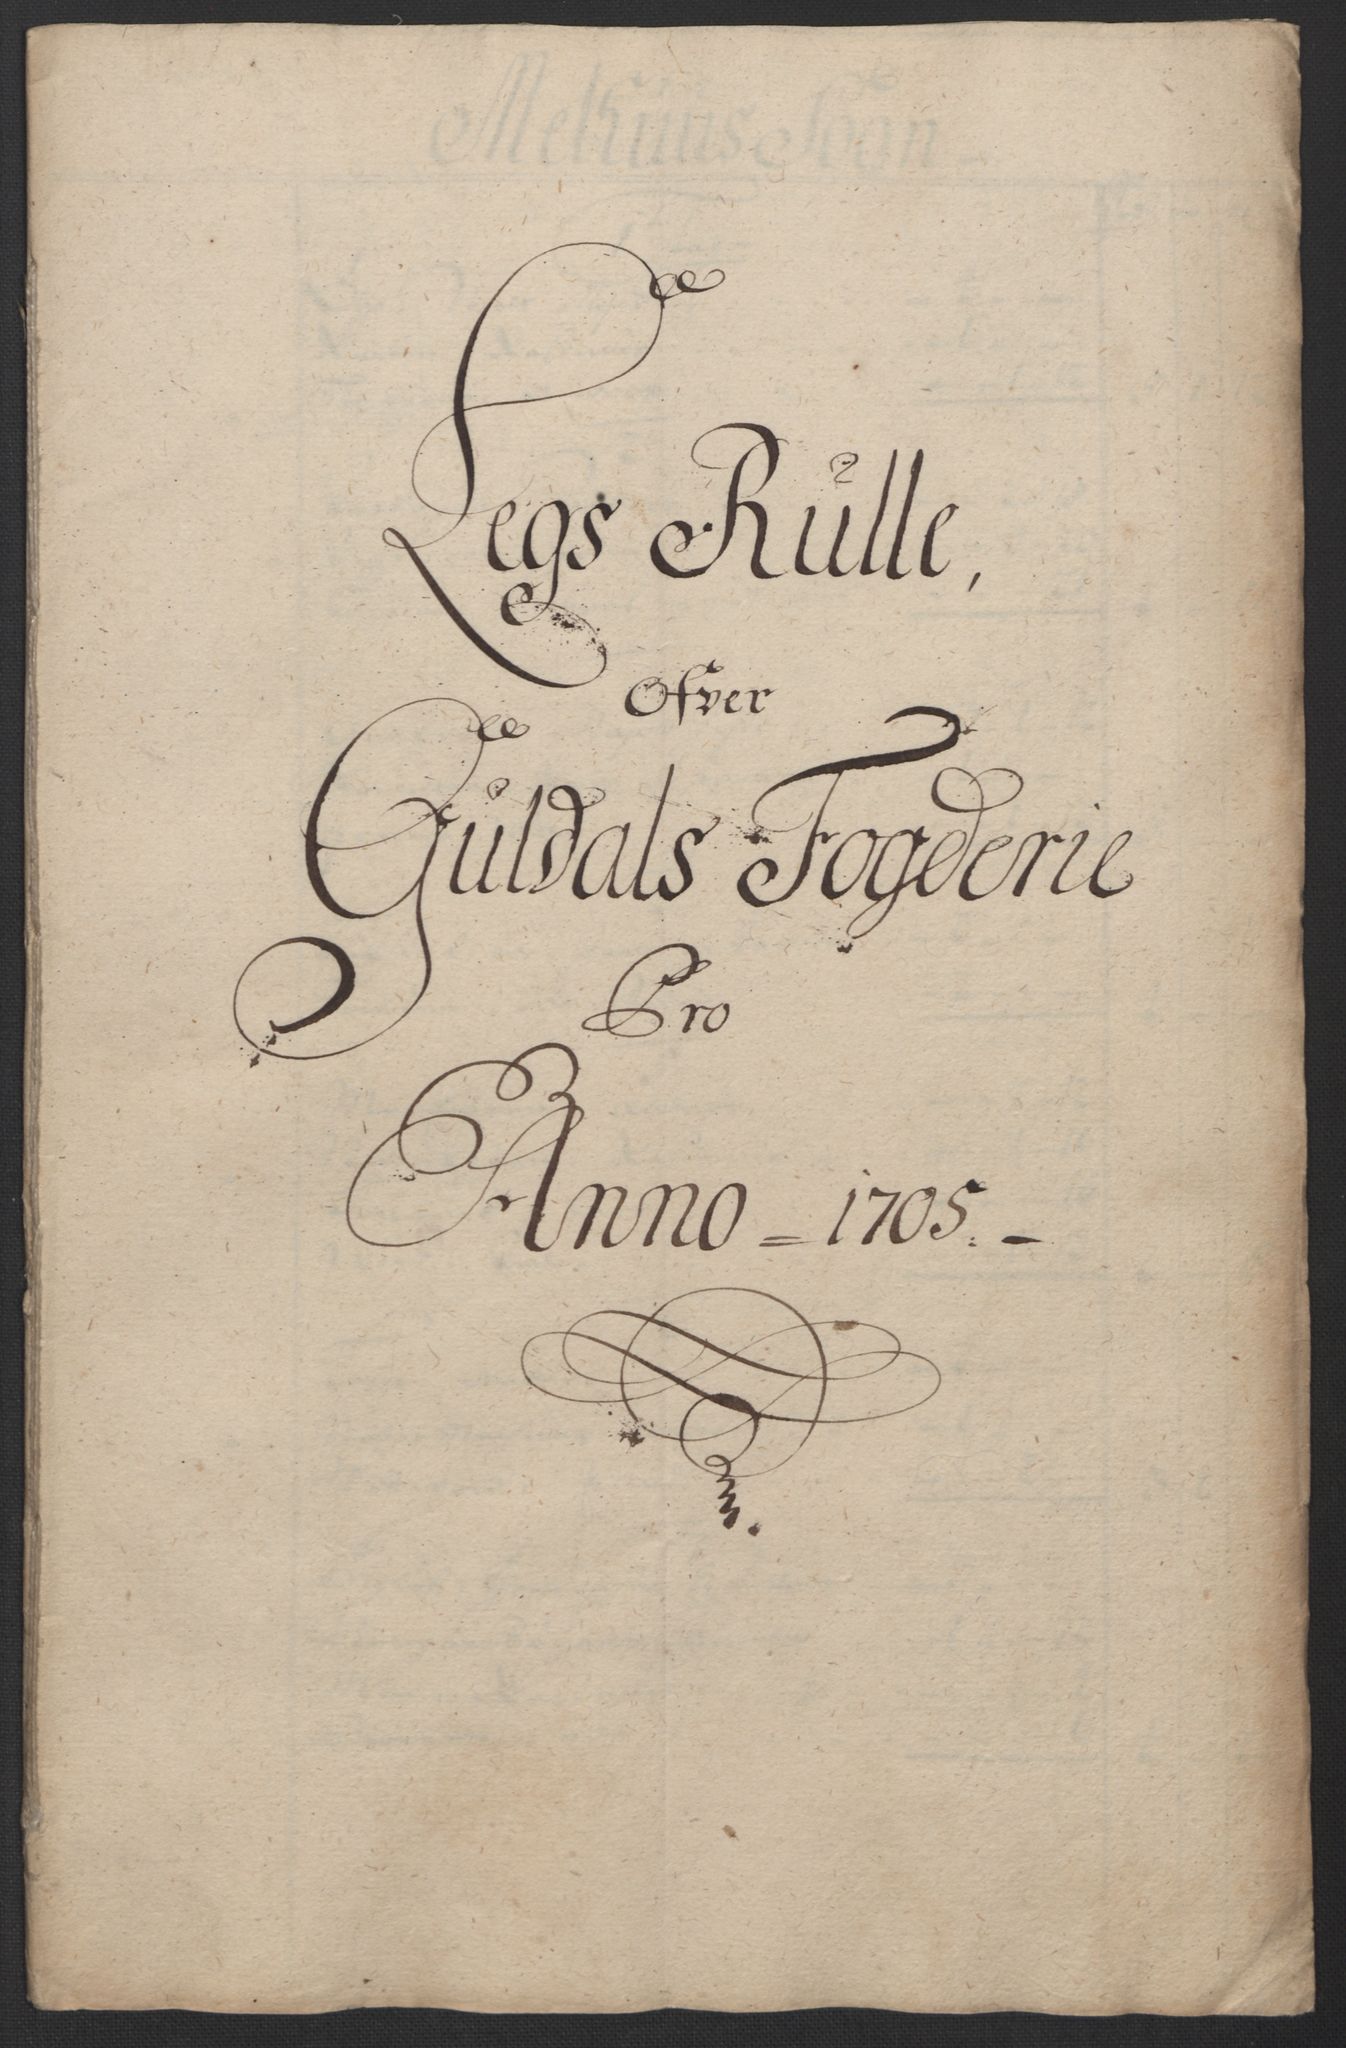 Legs Rulle,
Ofver
Guldals Fogderie
Pro
Anno = 1705. -